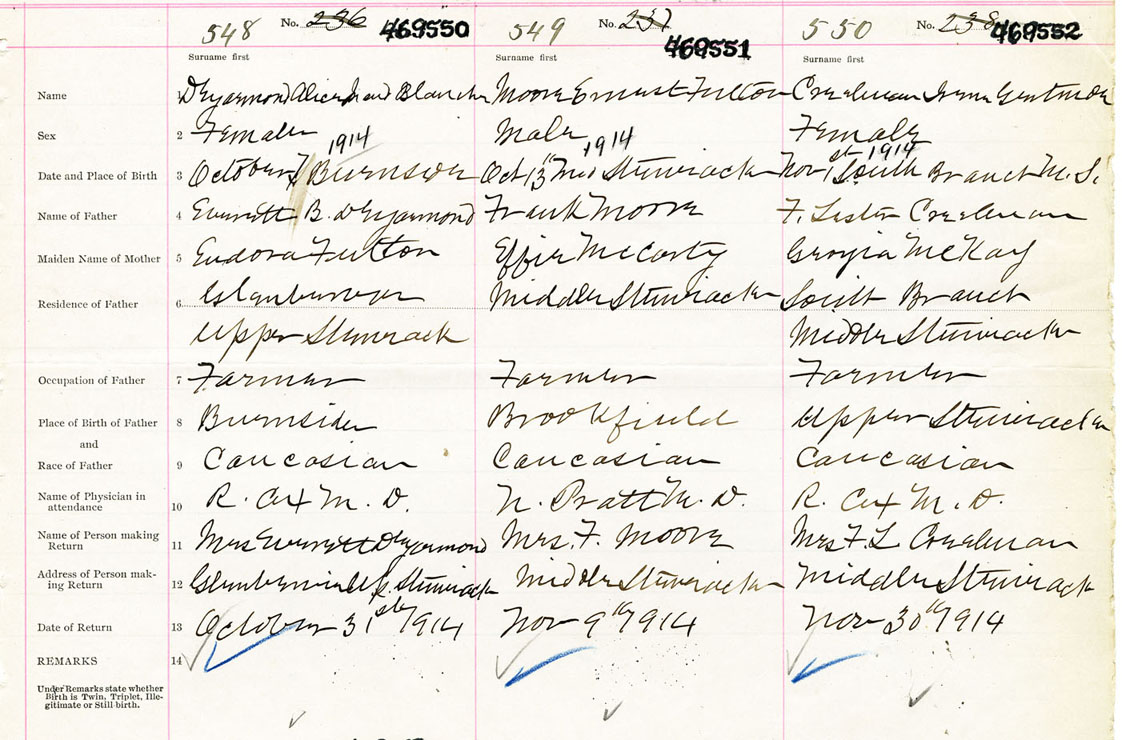 548 No. 236 469550 549 No. 237 469551 550 No. 238 469552
Surname first Surname first Surname first
Name 1 DeYarmond Alice Blanche Moore Ernest Fulton Creelman Irene Gertrude
Sex 2 Female Male Female
1914 1914 1914
Date and Place of Birth 3 October Burnside Oct 13th Mid Stewiacke Nov 1st South Branch M. S.
Name of Father 4 Everett B. DeYarmond Frank Moore F. Lester Creelman
Maiden Name of Mother 5 Eudora Fulton Effie McCarty Georgia McKay
Residence of Father 6 Middle Stewiacke South Branch
Upper Stewiack Middle Stewiacke
Occupation of Father 7 Farmer Farmer Farmer
Place of Birth of Father 8 Burnside Brookfield Upper Stewiacke
and
Race of Father 9 Caucasian Caucasian Caucasian
Name of Physician in
attendance 10 R. Cox M. D. N. Pratt M. D. R. Cox M. D.
Name of Person making
Return 11 Mrs Everett DeYarmond Mrs. F. Moore Mrs F. L Creelman
Address of Person mak-
ing Return 12 Stewiacke Middle Stewiacke Middle Stewiack
Date of Return 13 October 31st 1914 Nov 9th 1914 Nov 30th 1914
REMARKS 14
Under Remarks state whether
Birth is Twin, Triplet, Ille-
gitimate or Still-birth.